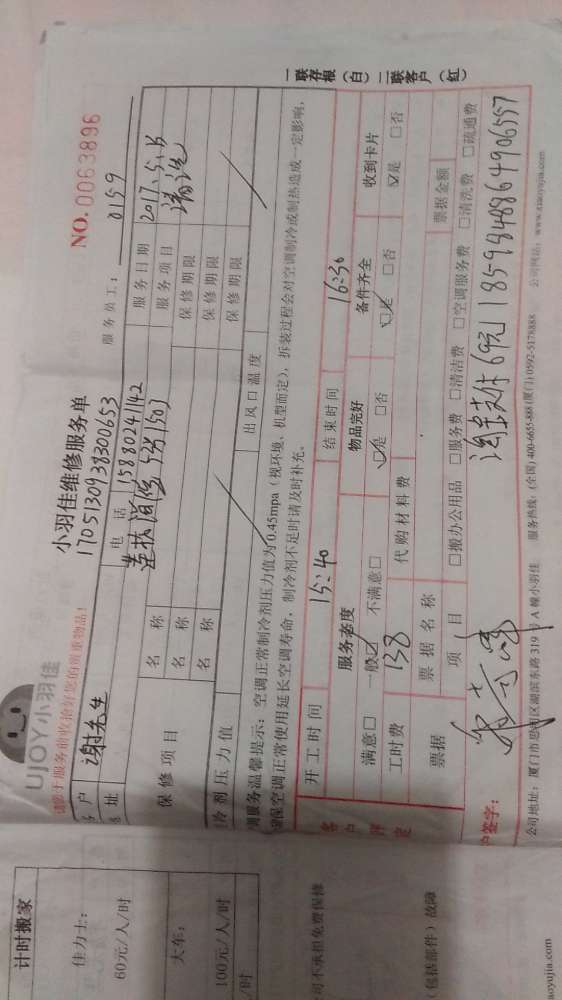 UJOY小羽佳
小羽佳维修服务单
NO. 0063896
1705130938300653
服务员工: 0159
请您于服务前收拾好您的贵重物品!
户 谢先生 电话 15880241142 服务日期 2017.5.15
址 莲扶 503 服务项目 清洗
保修项目 名称 保修期限
名称 保修期限
名称 保修期限
冷剂压力值 出风口温度
调服务温馨提示: 空调正常制冷剂压力值为0.45mpa(视环境、机型而定), 拆装过程会对空调制冷或制热造成一定影响,
保空调正常使用延长空调寿命, 制冷剂不足时请及时补充。
开工时间 15:40 结束时间 16:30
客户评定
服务态度 物品完好 备件齐全 收到卡片
满意□ 一般☑ 不满意□ ☑是 □否 ☑是 □否 ☑是 □否
工时费 138 代购材料费
票据 票据名称 票据金额
项目 □搬办公用品 □服务费 □清洁费 □空调服务费 □清洗费 □疏通费
户签字: 淘宝支付69元 1859848864906557
公司地址: 厦门市思明区湖滨东路319号A幢小羽佳 服务热线: (全国)400-6655-888 (厦门)0592-5178888 公司网站: www.xiaoyujia.com
一联存根(白) 二联客户(红)
计时搬家
佳力士:
60元/人/时
大车:
100元/人/时
/时
司不承担免费保修
包括部件)故障
aoyujia.com